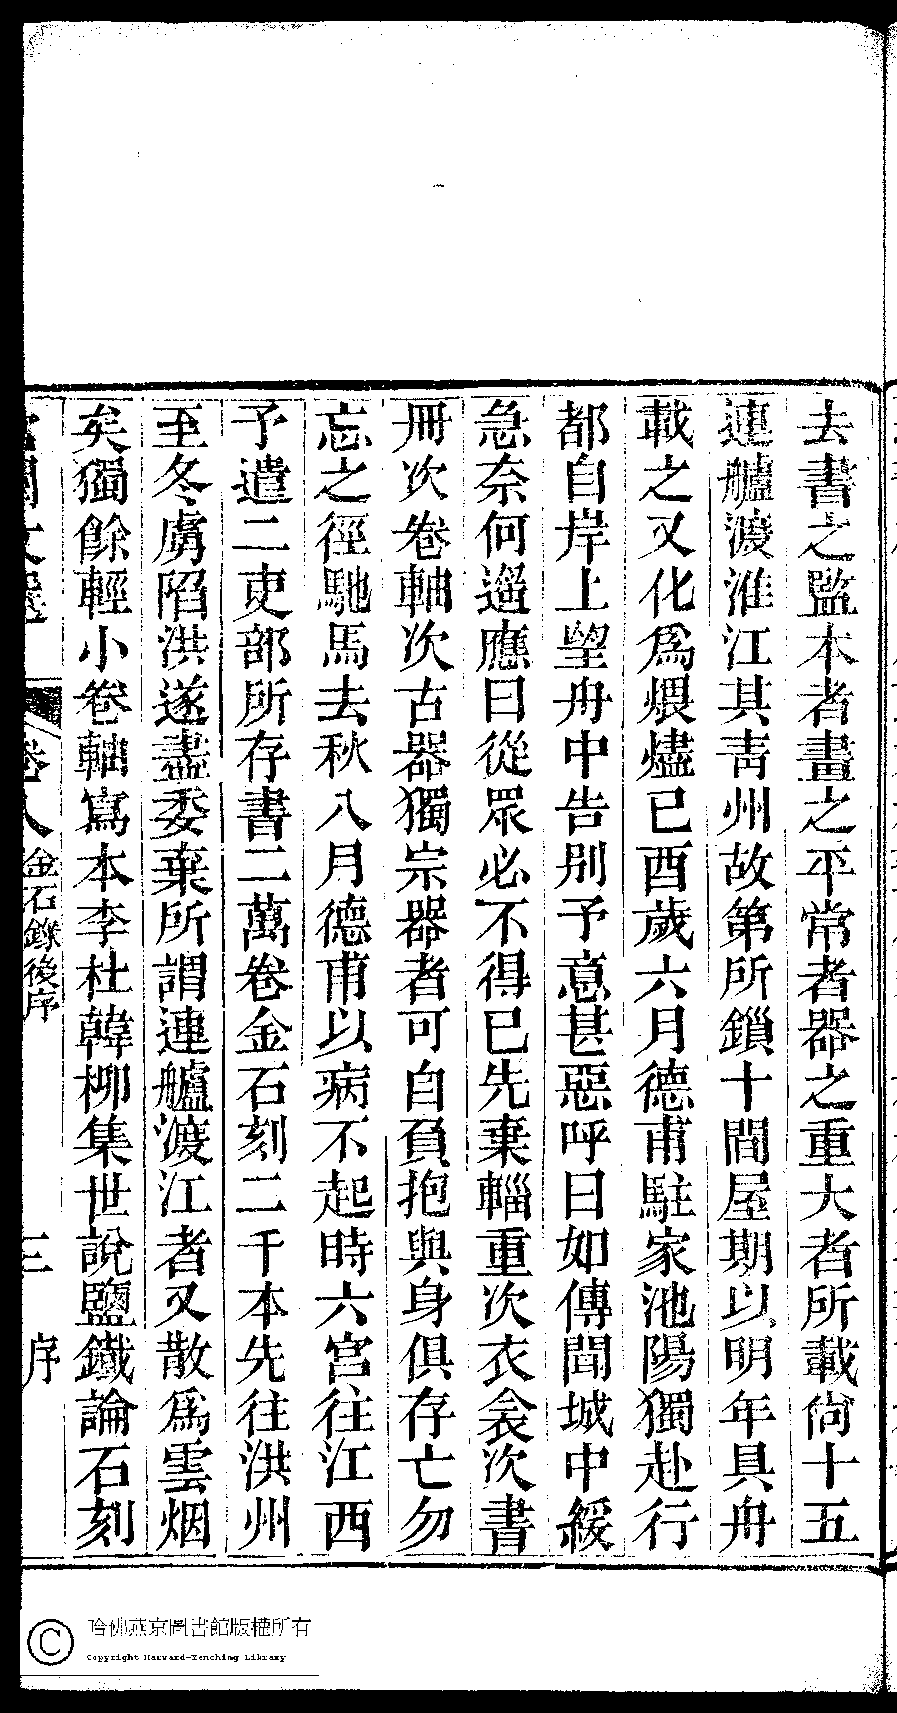 去書之監本者畫之平常者器之重大者所載尙十五
連艫渡淮江其靑州故第所鎖十間屋期以明年具舟
載之又化爲煨燼已酉歲六月德甫駐家池陽獨赴行
都自岸上望舟中告别予意甚惡呼曰如傳聞城中緩
急奈何遥應曰從眾必不得已先棄輜重次衣衾次書
冊次卷軸次古器獨宗器者可自負抱與身俱存亡勿
忘之徑馳馬去秋八月德甫以病不起時六宮往江西
予遣二吏部所存書二萬卷金石刻二千本先往洪州
至冬虜陷洪遂盡委棄所謂連艫渡江者又散爲雲烟
矣獨餘輕小卷軸寫本李杜韓柳集世說鹽鐵論石刻
宮閨文選 卷八 金石錄後序 三 序
哈佛燕京圖書館版權所有
Copyright Harvard-Yenching Library